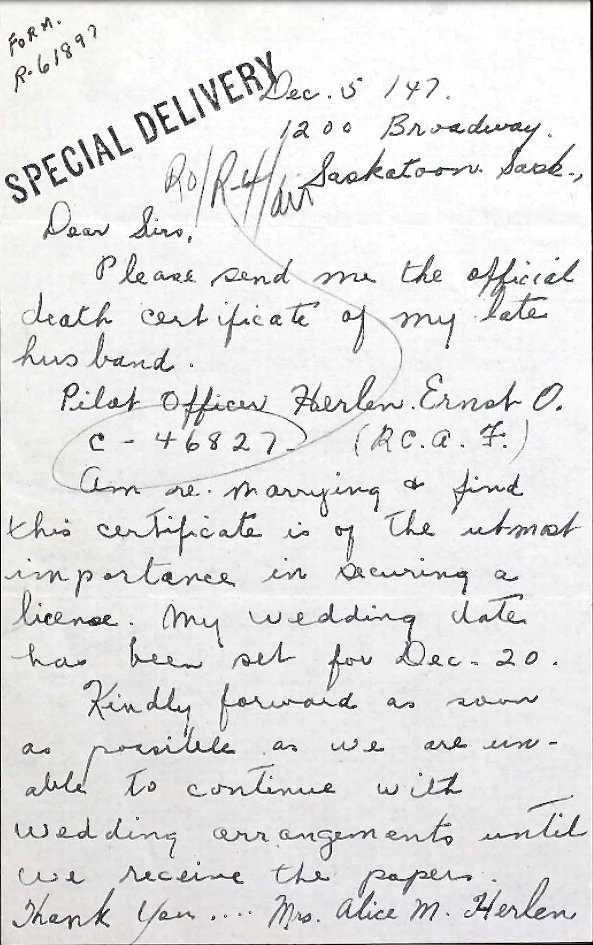 FORM.
R-61897
SPECIAL DELIVERY
Dec. 5 /47.
1200 Broadway.
RO/R-4/air
Saskatoon. Sask.,
Dear Sirs,
Please send me the official
death certificate of my late
husband.
Pilot Officer Herlen. Ernst O.
C-46827 (R.C.A.F.)
Am re. marrying & find
this certificate is of the utmost
importance in securing a
license. My wedding date
has been set for Dec. 20.
Kindly forward as soon
as possible as we are un-
able to continue with
wedding arrangements until
we receive the papers.
Thank You .... Mrs. Alice M. Herlen